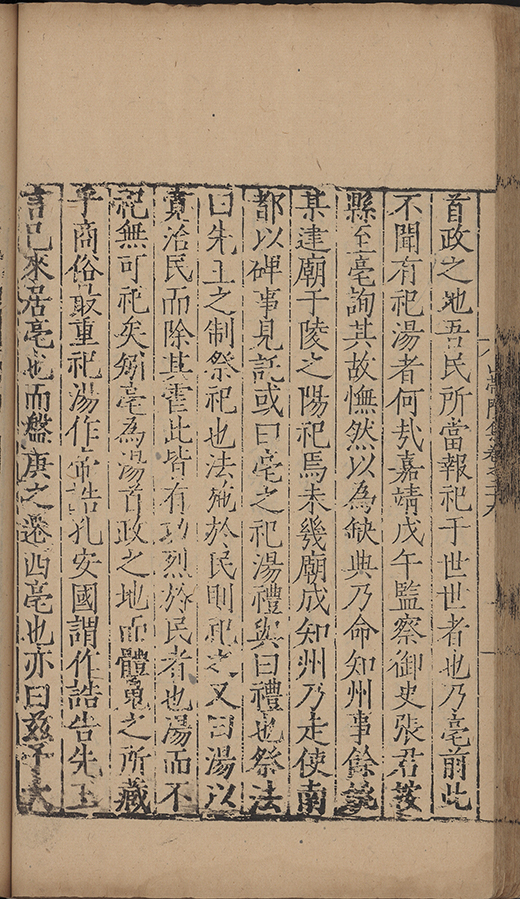 首政之地吾民所當報祀于世世者也乃亳前此
不聞有祀湯者何㢤嘉靖戊午監察御史張君按
縣至亳詢其故憮然以為缺典乃命知州事餘姚
某建廟于陵之陽祀焉未幾廟成知州乃走使南
都以碑事見託或曰亳之祀湯禮與曰禮也祭法
曰先王之制祭祀也法施於民則祀之又曰湯以
寛治民而除其虐此皆有功烈於民者也湯而不
祀無可祀矣矧亳為湯首政之地而體魄之所藏
乎商俗最重祀湯作帝誥孔安國謂作誥告先王
言已來居亳也而盤庚之遷西亳也亦曰兹予大